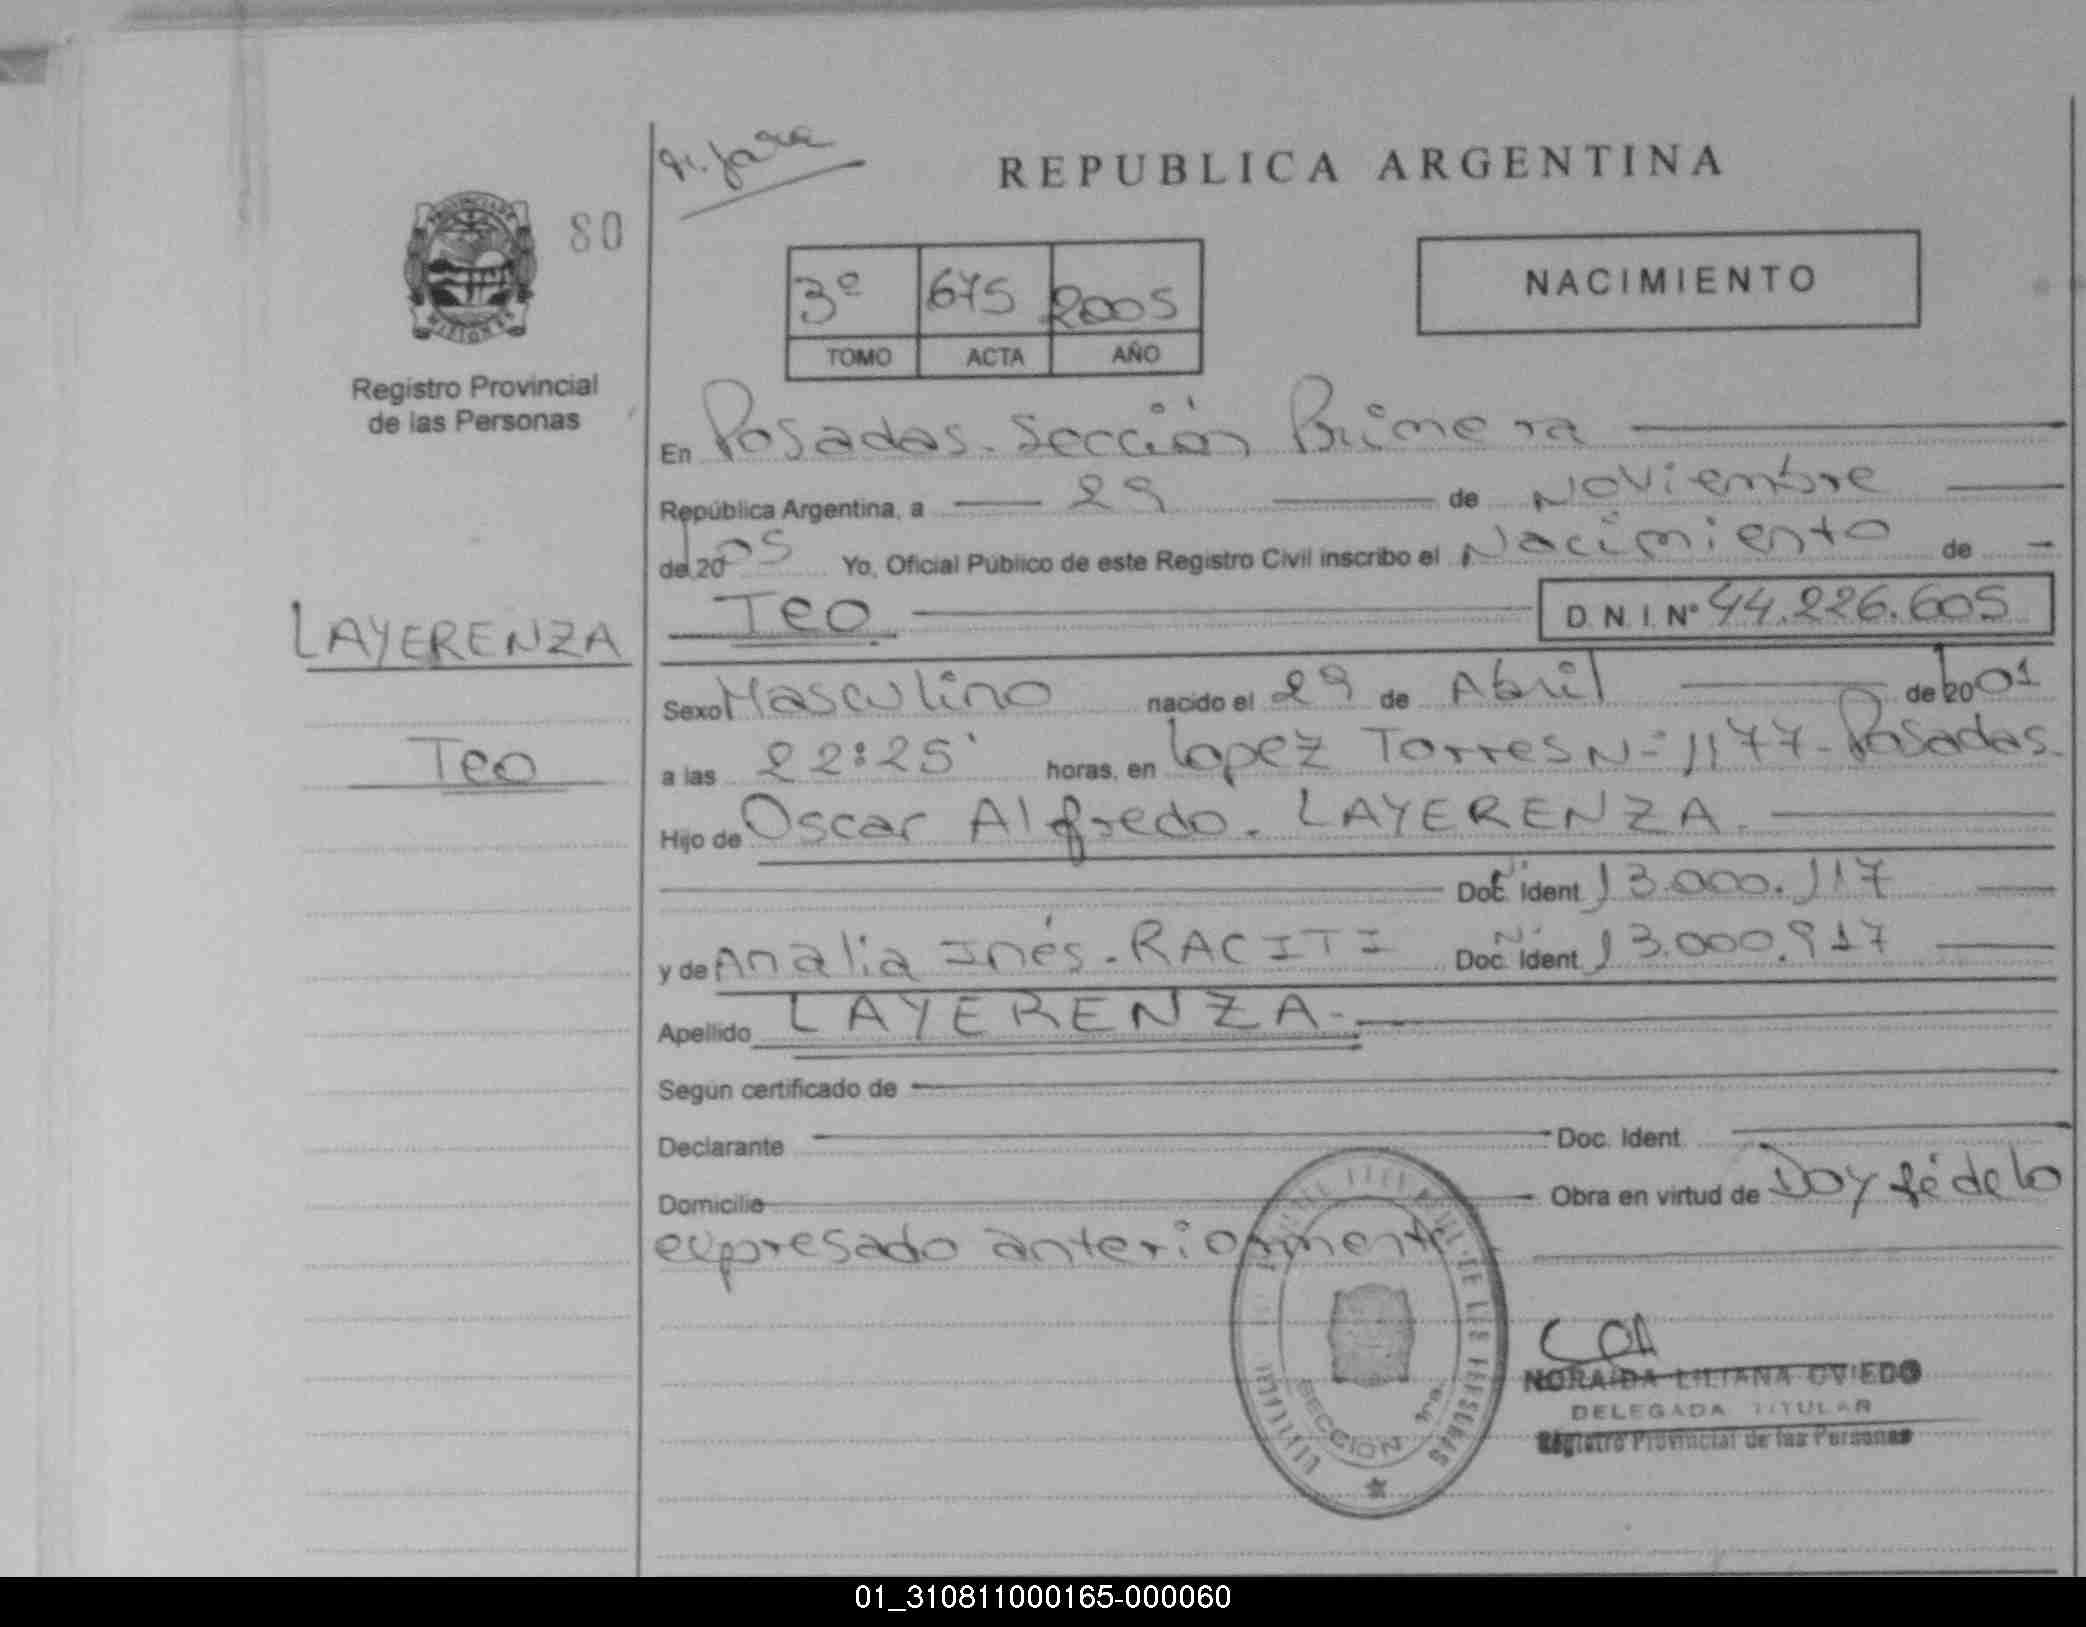 REPUBLICA ARGENTINA
80
NACIMIENTO
3º 675 2005
TOMO ACTA AÑO
Registro Provincial
de las Personas
En Posadas. Sección Primera
República Argentina, a 29 de Noviembre
de 2005 Yo, Oficial Público de este Registro Civil inscribo el Nacimiento de
LAYERENZA
Teo
Teo. D.N.I. Nº 44.226.605
Sexo Masculino nacido el 29 de Abril de 2001
a las 22:25' horas, en Lopez Torres Nº 1177-Posadas.
Hijo de Oscar Alfredo. LAYERENZA.
Doc. Ident 13.000.117
y de Analia Inés. RACITI Doc. Ident 13.000.917
Apellido LAYERENZA.
Según certificado de
Declarante Doc. Ident
Domicilio Obra en virtud de Doy fé de lo
expresado anteriormente
SECCION 1ra.
NORAIDA LILIANA OVIEDO
DELEGADA TITULAR
Registro Provincial de las Personas
01_310811000165-000060